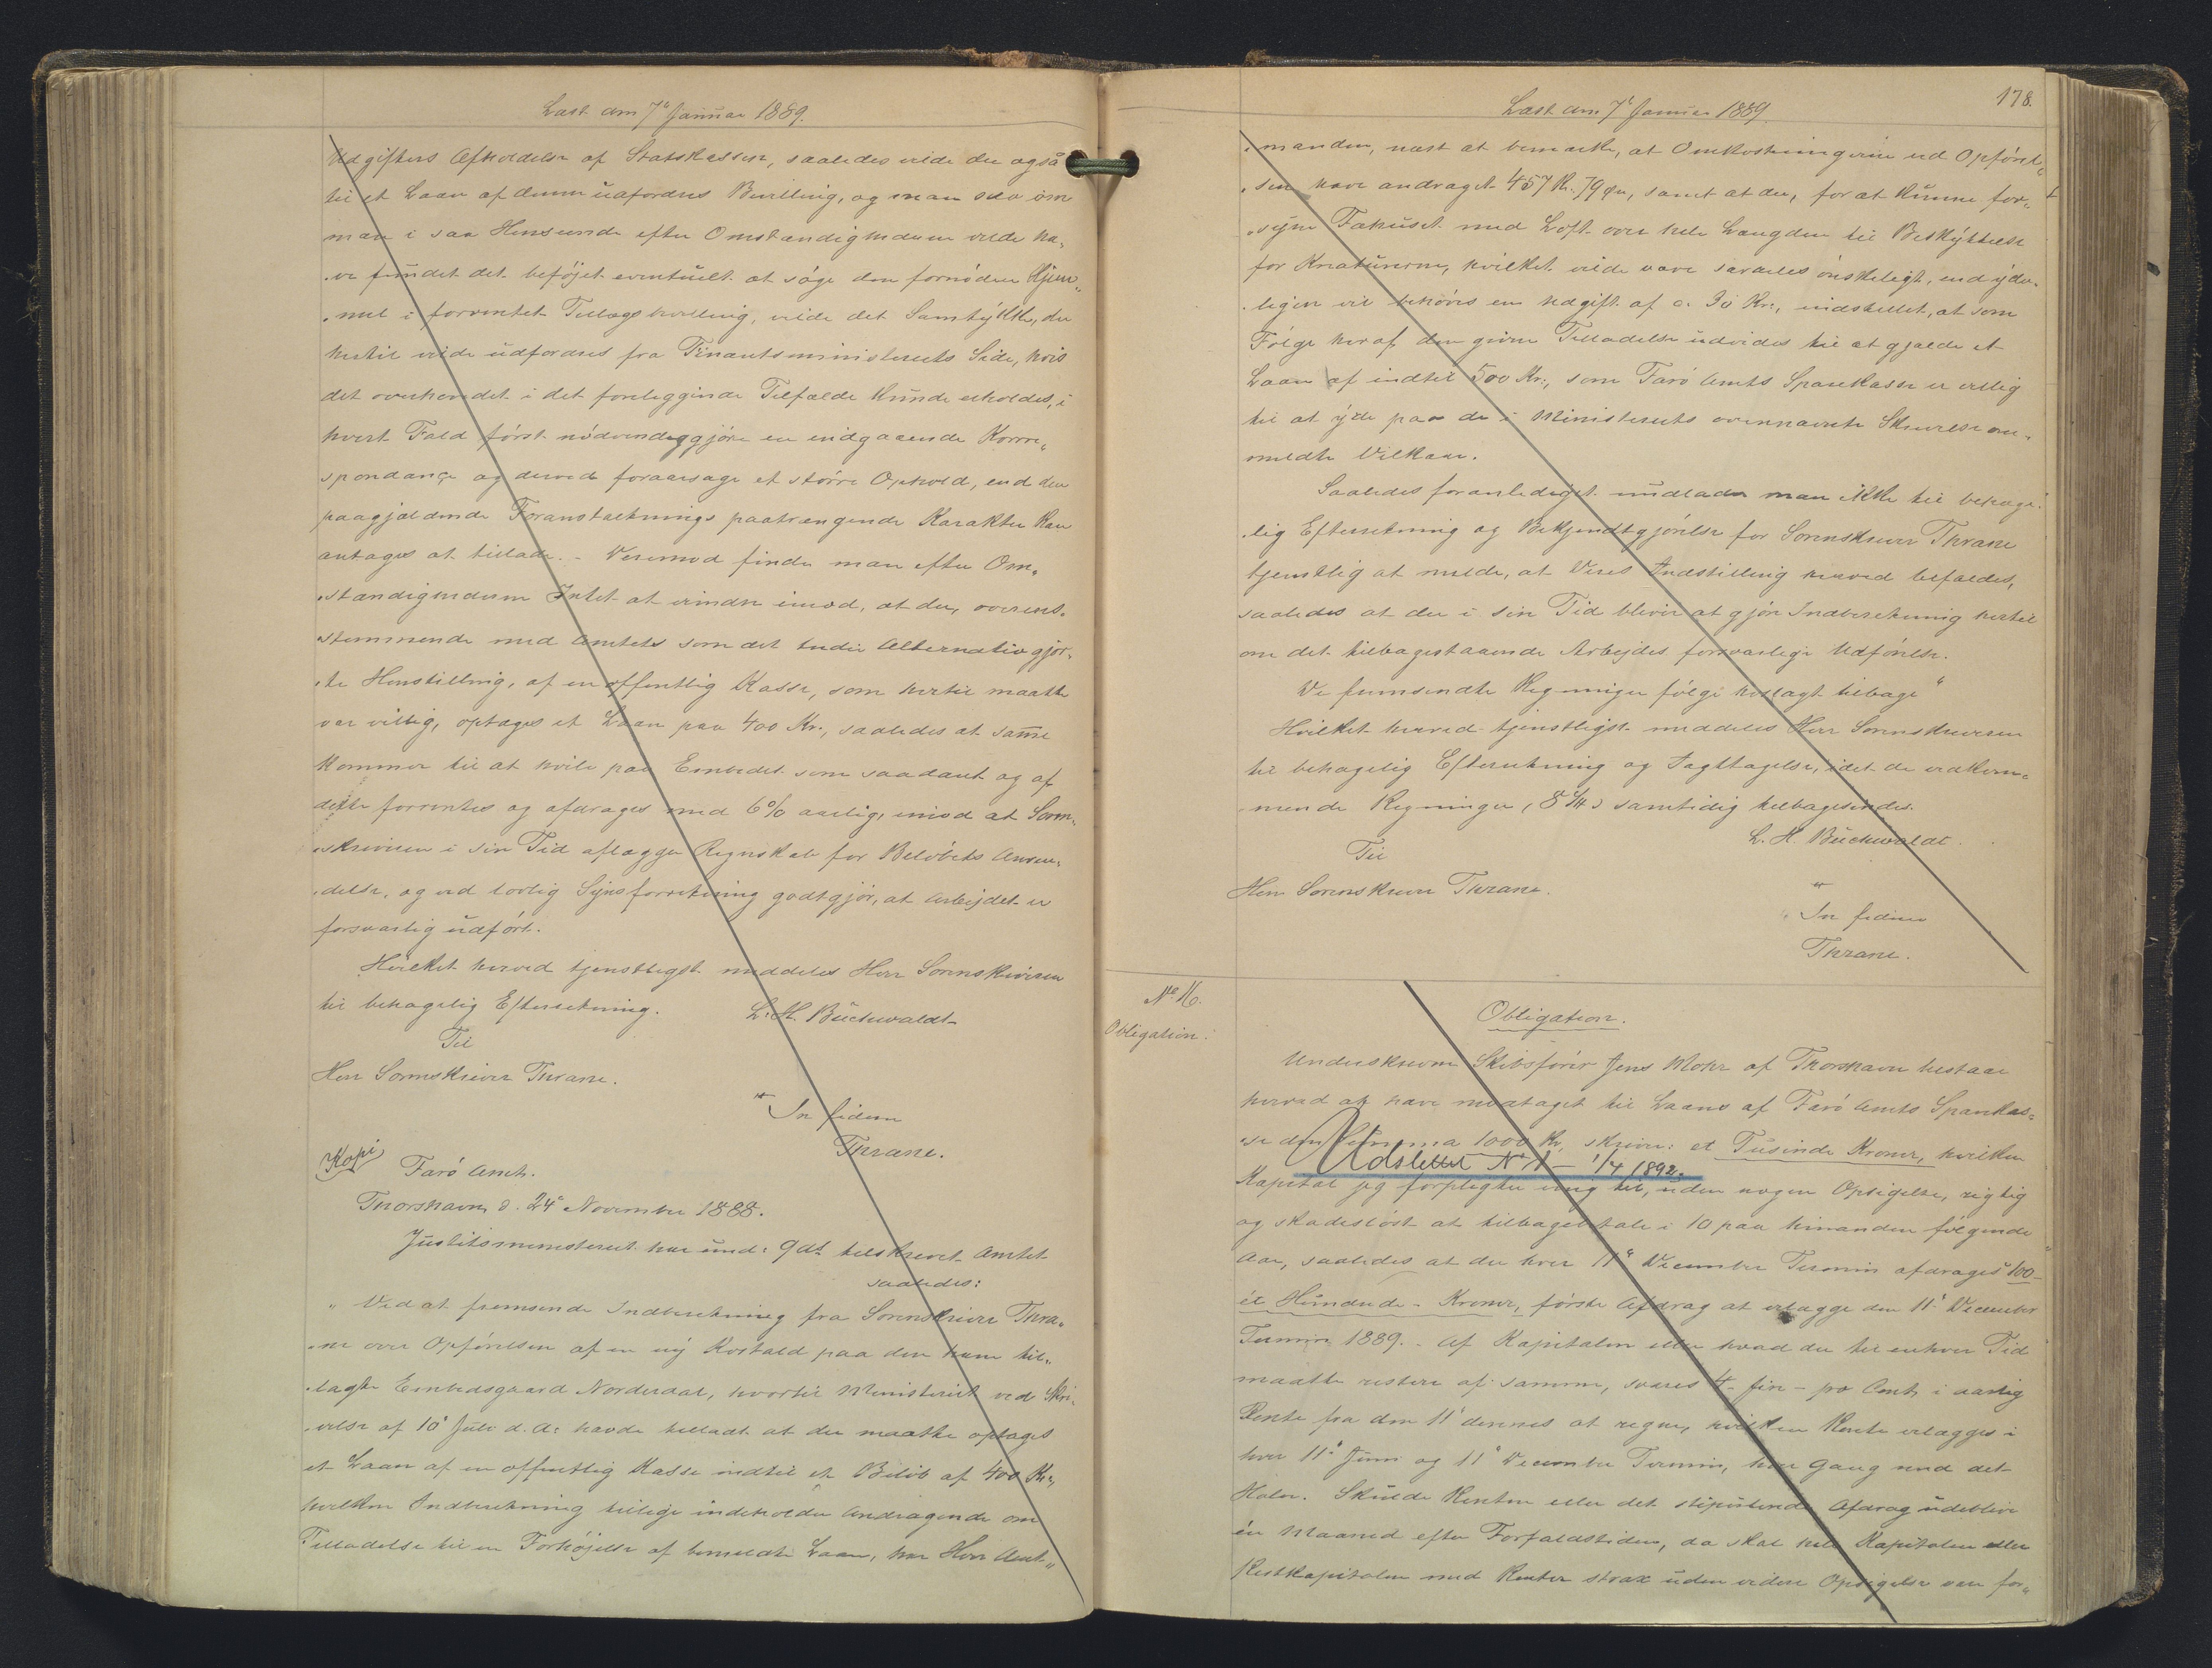 Læst den 7' Januar 1889.
Udgiftens Afholdelse af Statskassen, saaledes vilde der også
til et Laan af denne udfordres Bevilling, og man selv om
man i saa Henseende efter Omstændighederne vilde ha-
-ve fundet det beføjet eventuelt at søge den fornødne Hjem-
-mel i forventet Tillægsbevilling, vilde det Samtykke, der
hertil vilde udfordres fra Finantsministeriets Side, hvis
det overhovedet i det foreliggende Tilfælde kunde erholdes, i
hvert Fald først nødvendiggjøre en indgaaende Korre-
spondançe og derved foraarsage et større Ophold, end den
paagjældende Foranstaltnings paatrængende Karakter kan
antages at tillade. - Derimod finder man efter Om-
-stændighederne Intet at erindre imod, at der, overens-
-stemmende med Amtets som det tredie Alternativ gjor-
-te Henstilling, af en offentlig Kasse, som hertil maatte
var villig, optages et Laan paa 400 Kr., saaledes at samme
kommer til at hvile paa Embedet som saadant og af
dette forrentes og afdrages med 6% aarlig, imod at Soren-
-skriveren i sin Tid aflægger Regnskab for Beløbets Anven-
-delse, og ved lovlig Synsforretning godtgjør, at Arbejdet er
forsvarlig udført.
Hvilket herved tjenstligst meddeles Herr Sorenskriveren
til behagelig Efterretning.
L. H. Buchwaldt
Til
Herr Sorenskriver Thrane.
In fidem
Thrane.
Kopi
Farö Amt.
Thorshavn d. 24' November 1888.
Justitsministeriet har und: 9ds tilskrevet Amtet
saaledes:
"Ved at fremsende Indberetning fra Sorenskriver Thra-
-ne over Opførelsen af en ny Kostald paa den ham til-
-lagte Embedsgaard Nordredal, hvortil Ministeriet ved Skri-
-velse af 10' Juli d. A: havde tilladt at der maatte optages
et Laan af en offentlig Kasse indtil et Beløb af 400 Kr.,
hvilken Indberetning tillige indeholder Andragende om
Tilladelse til en Forhøjelse af bemeldte Laan, har Herr Amt-
178.
Læst den 7' Januar 1889.
-manden, næst at bemærke, at Omkostningerne ved Opførel-
-sen have andraget 457 Kr. 79 Øre, samt at der, for at kunne for-
-syne Fæhuset med Loft over hele Længden til Beskyttelse
for Kreaturerne, hvilket vilde være særdeles ønskeligt, end yder-
-ligere vil behøves en Udgift af c. 30 Kr., indstillet, at som
Følge heraf den givne Tilladelse udvides til at gjælde et
Laan af indtil 500 Kr., som Farö Amts Sparekasse er villig
til at yde paa de i Ministeriets ovennævnte Skrivelse om-
meldte Vilkaar.
Saaledes foranlediget undlader man ikke til behage-
-lig Efterretning og Bekjendtgjørelse for Sorenskriver Thrane
tjenstlig at melde, at Deres Indstilling herved bifaldes,
saaledes at der i sin Tid bliver at gjøre Indberetning hertil
om det tilbagestaaende Arbejdes forsvarlige Udførelse.
De fremsendte Regninger følge hoslagt tilbage"
Hvilket herved tjenstligst meddeles Herr Sorenskriveren
til behagelig Efterretning og Iagttagelse, idet de vedkom-
-mende Regninger (8 St) samtidig tilbagesendes.
L. H. Buchwaldt.
Til
Herr Sorenskriver Thrane.
In fidem
Thrane.
No 16.
Obligation.
Obligation.
Underskrevne Skibsfører Jens Mohr af Thorshavn tilstaar
herved at have modtaget til Laans af Farö Amts Sparekas-
-se den Summa 1000 Kr, skriver: et Tusinde Kroner, hvilken
Udslettet No 1 - 1/4 1892.
Kapital jeg forpligter mig til, uden nogen Opsigelse, rigtig
og skadesløst at tilbagebetale i 10 paa hinanden følgende
Aar, saaledes at der hver 11' December Termin afdrages 100 -
ét Hundrede - Kroner, første Afdrag at erlægge den 11' December
Termin 1889. - Af Kapitalen eller hvad der til enhver Tid
maatte restere af samme, svares 4 - fire - pro Cent, i aarlig
Rente fra den 11' dennes at regne, hvilken Rente erlægges i
hver 11' Juni og 11' December Termin, hver Gang med det
Halve. Skulde Renten eller det stipulerede Afdrag udeblive
én Maaned efter Forfaldstiden, da skal hele Kapitalen eller
Restkapitalen med Renter strax uden videre Opsigelse være for-